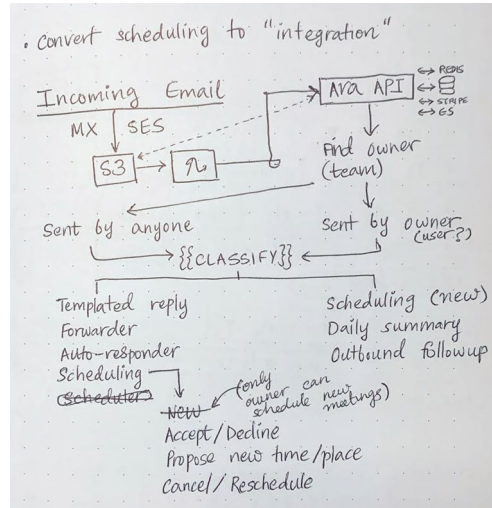 • Convert scheduling to "integration"
Incoming Email
MX SES
S3
λ
Ava API
↔ REDIS
↔
↔ STRIPE
↔ ES
Find owner
(team)
Sent by anyone
Sent by owner
(user?)
{{CLASSIFY}}
Templated reply
Forwarder
Auto-responder
Scheduling
(Scheduler)
Scheduling (new)
Daily summary
Outbound followup
New
(only
owner can
schedule new
meetings)
Accept/Decline
Propose new time/place
Cancel/Reschedule